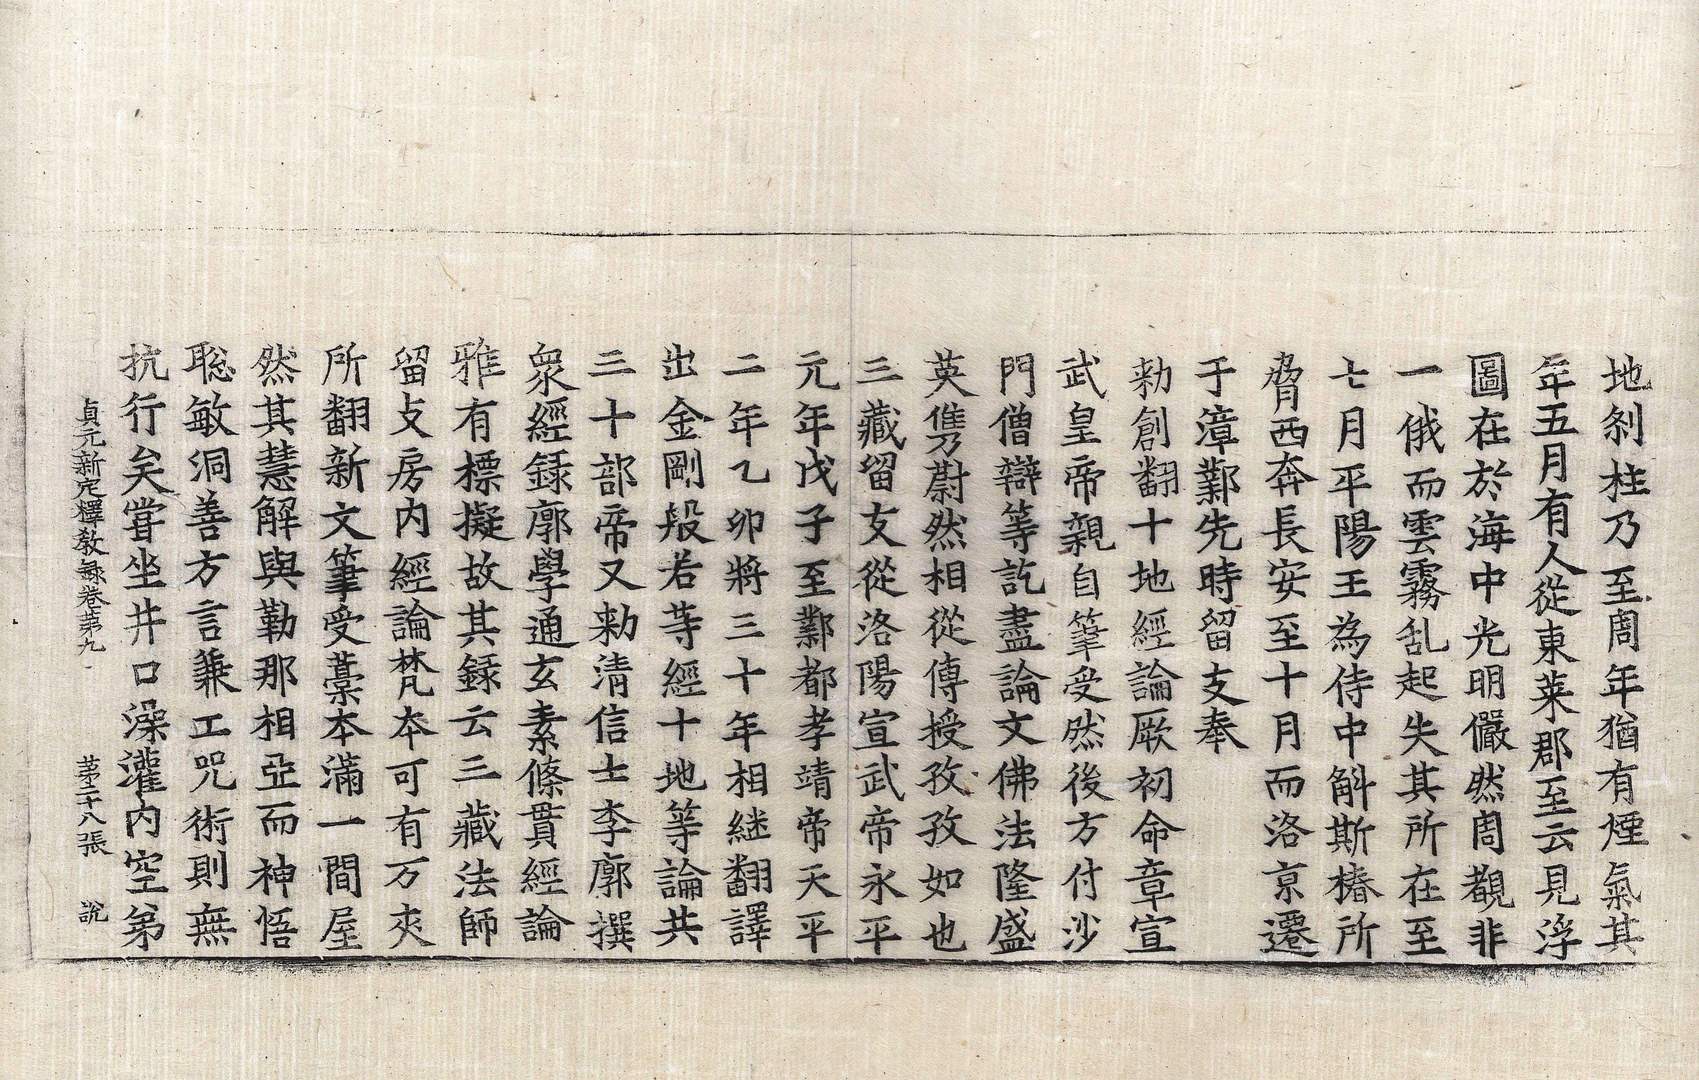 地刹柱乃至周年猶有煙氣其
年五月有人從東莱郡至云見浮
圖在於海中光明儼然周覩非
一俄而雲霧乱起失其所在至
七月平陽王為侍中斛斯椿所
脅西奔長安至十月而洛京遷
于漳鄴先時留支奉
勑創翻十地經論厥初命章宣
武皇帝親自筆受然後方付沙
門僧辯等訖盡論文佛法隆盛
英儁蔚然相從傳授孜孜如也
三藏留支從洛陽宣武帝永平
元年戊子至鄴都孝靖帝天平
二年乙卯將三十年相継翻譯
出金剛般若等經十地等論共
三十部帝又勑清信士李廓撰
衆經録廓學通玄素條貫經論
雅有標擬故其録云三藏法師
留支房内經論梵本可有万夾
所翻新文筆受藁本滿一間屋
然其慧解與勤那相亞而神悟
聡敏洞善方言兼工呪術則無
抗行矣甞坐井口澡灌内空弟
貞元新定釋敎録卷第九 第二十八張 說